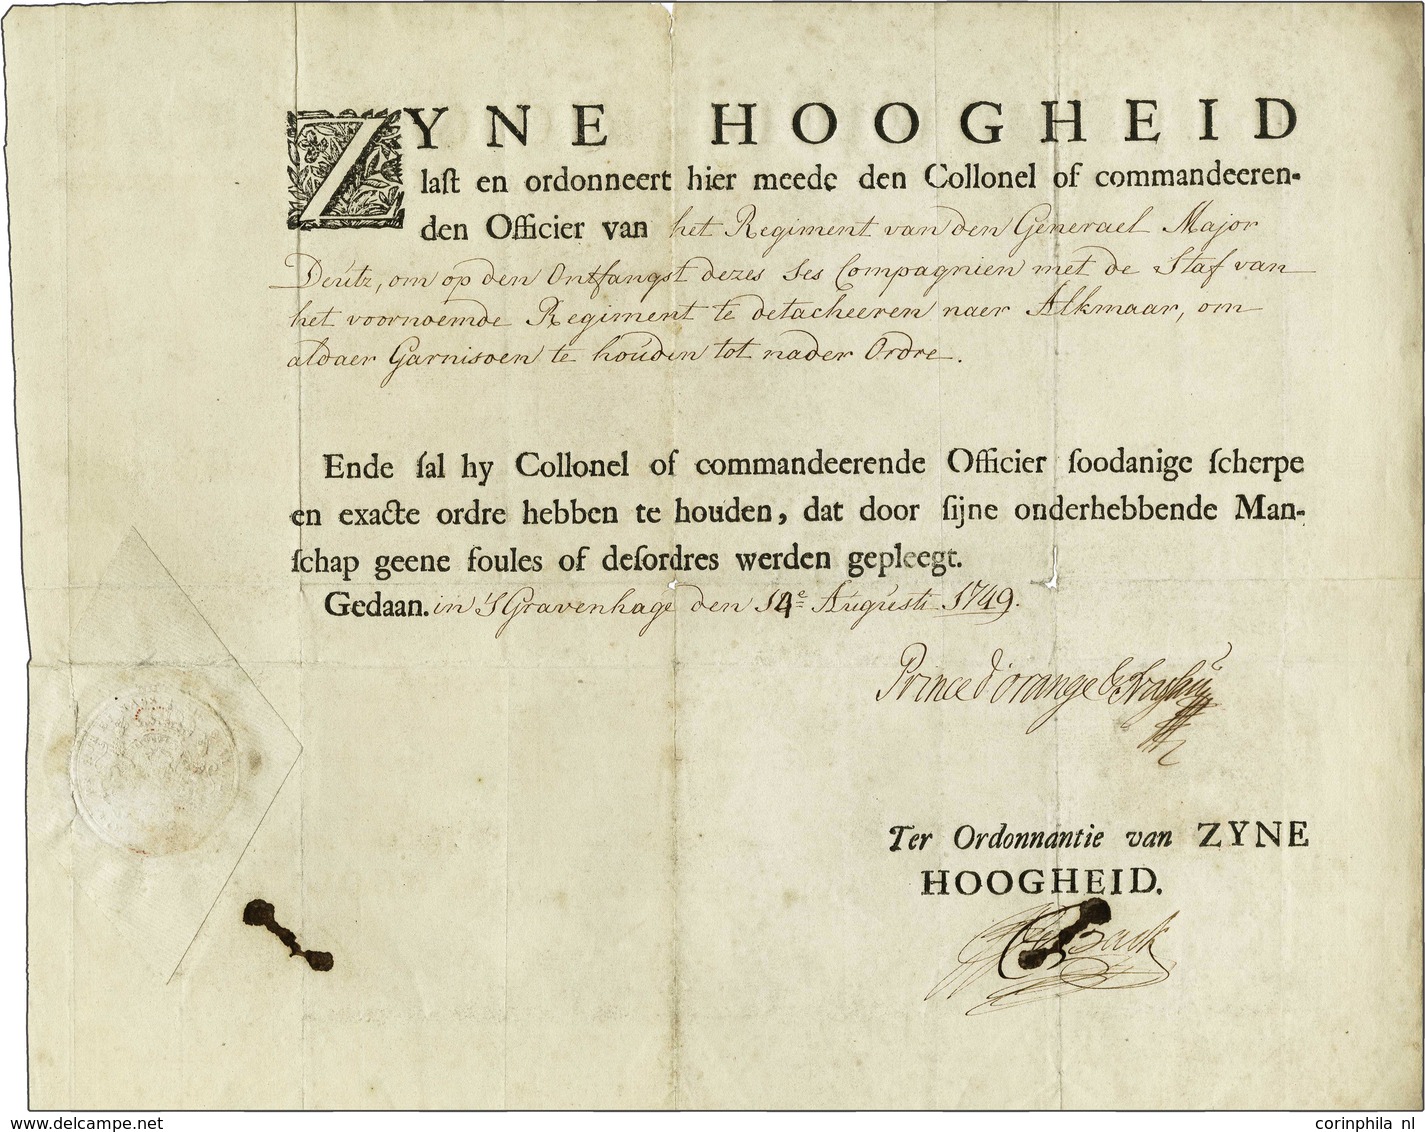 ZYNE HOOGHEID
laſt en ordonneert hier meede den Collonel of commandeeren-
den Officier van het Regiment van den Generael Major
Deütz, om op den Ontfangst dezes Ses Compagnien met de Staf van
het voornoemde Regiment te detacheeren naer Alkmaar, om
aldaer Garnisoen te hoúden tot nader Ordre.
Ende ſal hy Collonel of commandeerende Officier ſoodanige ſcherpe
en exacte ordre hebben te houden, dat door ſijne onderhebbende Man-
ſchap geene foules of deſordres werden gepleegt.
Gedaan. in 's Gravenhage den 14e Augusti 1749.
Prince d'orange
Ter Ordonnantie van ZYNE
HOOGHEID.
www.delcampe.net
corinphila nl